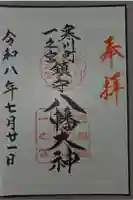 奉拝
寒川町鎮守
一之宮
八幡大神
令和八年七月廿一日